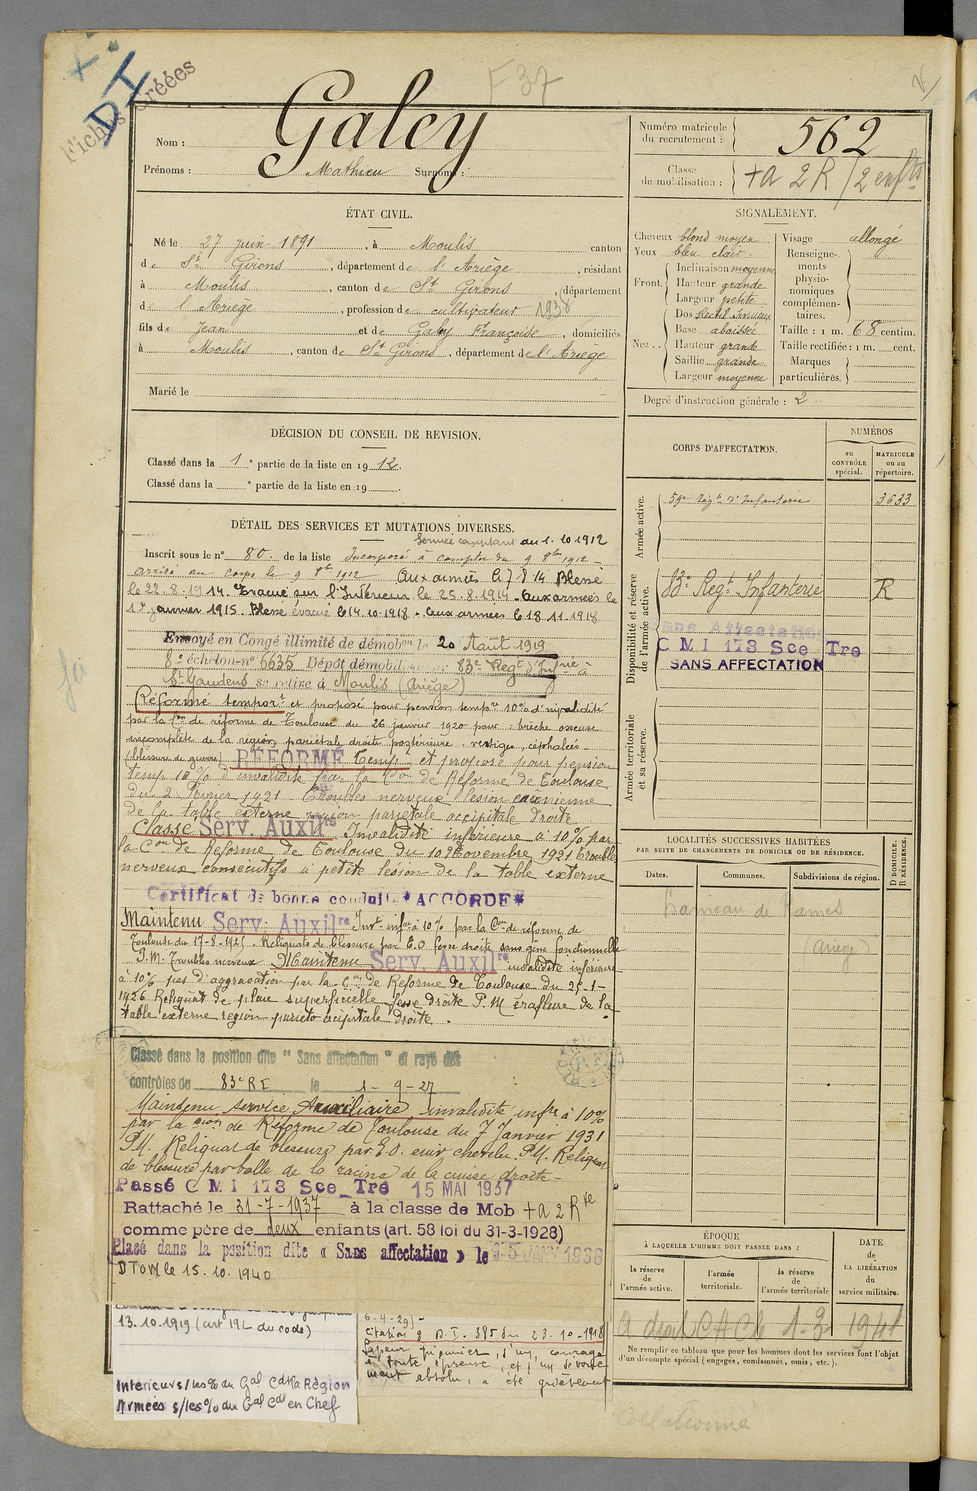 F 37
Fiches Créées
DI
Nom : Galey
Prénoms : Mathieu Surnoms :
Numéro matricule du recrutement : 562
Classe de mobilisation : +a 2 R / 2 enfts
ÉTAT CIVIL.
Né le 27 juin 1891, à Moulis canton
de St Girons, département de l'Ariège, résidant
à Moulis, canton de St Girons, département
de l'Ariège, profession de cultivateur 1938
fils de Jean et de Galey Françoise, domiciliés
à Moulis, canton de St Girons, département de l'Ariège
Marié le
SIGNALEMENT.
Cheveux blond moyen
Yeux bleu clair
Front. Inclinaison moyenne
Hauteur grande
Largeur petite
Nez.. Dos
Base abaissée
Hauteur grande
Saillie grande
Largeur moyenne
Visage allongé
Renseignements physionomiques complémentaires.
Taille : 1 m. 68 centim.
Taille rectifiée : 1 m. cent.
Marques particulières.
Degré d'instruction générale : 2.
DÉCISION DU CONSEIL DE REVISION.
Classé dans la 1e partie de la liste en 1912.
Classé dans la e partie de la liste en 19 .
DÉTAIL DES SERVICES ET MUTATIONS DIVERSES.
Service comptant du 1.10 1912
Inscrit sous le n° 80. de la liste Incorporé à compter du 9 8bre 1912
arrivé au corps le 9 8bre 1912 Aux armées le 7 8 14 Blessé
le 22.8.1914. Evacué sur l'Intérieur le 25.8.1914. Aux armées le
17 janvier 1915. Blessé évacué le 14.10.1918. Aux armées le 18.11.1918
Envoyé en Congé illimité de démobon le 20 Août 1919
8e échelon n° 6635 Dépôt démobilisateur 83e Regt d'Infrie à
St Gaudens se retire à Moulis (Ariège)
Réformé temporre et proposé pour pension tempre 10% d'invalidité
par la Con de réforme de Toulouse du 26 janvier 1920 pour : brèche osseuse
incomplète de la région pariétale droite postérieure. vertiges, céphalées
(blessure de guerre) RÉFORMÉ Temp. et proposé pour pension
temp 10% d'invalidité par la Con de Réforme de Toulouse
du 2 Février 1921 Troubles nerveux lésion
de la table externe région pariétale occipitale droite
Classé Serv. Auxilre Invalidité inférieure à 10% par
la Con de Réforme de Toulouse du 10 Novembre 1921 Troubles
nerveux consécutifs à petite lésion de la table externe
Certificat de bonne conduite *ACCORDE*
Maintenu Serv. Auxilre Invté infre à 10% par la Con de réforme de
Toulouse du 17-8-1925. Reliquats de blessure par E.O fesse droite sans gêne fonctionnelle
P.M. Troubles nerveux Maintenu Serv. Auxilre invalidité inférieure
à 10% pas d'aggravation par la Con de Réforme de Toulouse du 25-1-
1926 Reliquat de plaie superficielle fesse droite P.M éraflure de la
table externe region parieto occipitale droite.
Classé dans la position dite " Sans affectation " et rayé des
contrôles du 83e RI le 1-9-27
Maintenu service Auxiliaire invalidité infre à 10%
par la Con de Réforme de Toulouse du 7 Janvier 1931
P.M. Reliquat de blessure par E.O. cuir chevelu. P.M. Reliquat
de blessure par balle de la racine de la cuisse droite.
Passé C M I 173 Sce Tre 15 MAI 1937
Rattaché le 31-7-1937 à la classe de Mob +a 2 Rve
comme père de deux enfants (art. 58 loi du 31-3-1928)
Placé dans la position dite « Sans affectation » le 1938
DTOM le 15.10.1940
13.10.1919 (art 192 du code)
Intérieur s/les % du Gal Cdt la Région
Armées s/les % du Gal Cdt en Chef
6-4-29) -
citation g D.I. 385 du 23-10-1918
Sapeur pionnier, d'un courage
à toute épreuve, et d'un dévoue-
ment absolu, a été grièvement
CORPS D'AFFECTATION.
NUMÉROS
au CONTRÔLE spécial.
MATRICULE ou au répertoire.
Armée active.
59e Régt d'Infanterie 3633
Disponibilité et réserve de l'armée active.
83e Regt Infanterie R
Sans Affectation
C M I 173 Sce Tre
SANS AFFECTATION
Armée territoriale et sa réserve.
LOCALITÉS SUCCESSIVES HABITÉES
PAR SUITE DE CHANGEMENTS DE DOMICILE OU DE RÉSIDENCE.
Dates. Communes. Subdivisions de région.
D DOMICILE. R RÉSIDENCE.
Hameau de
(Ariège)
ÉPOQUE
À LAQUELLE L'HOMME DOIT PASSER DANS :
la réserve de l'armée active.
l'armée territoriale.
la réserve de l'armée territoriale
DATE de LA LIBÉRATION du service militaire.
1941
Ne remplir ce tableau que pour les hommes dont les services font l'objet
d'un décompte spécial (engagés, condamnés, omis, etc.).
Collationné